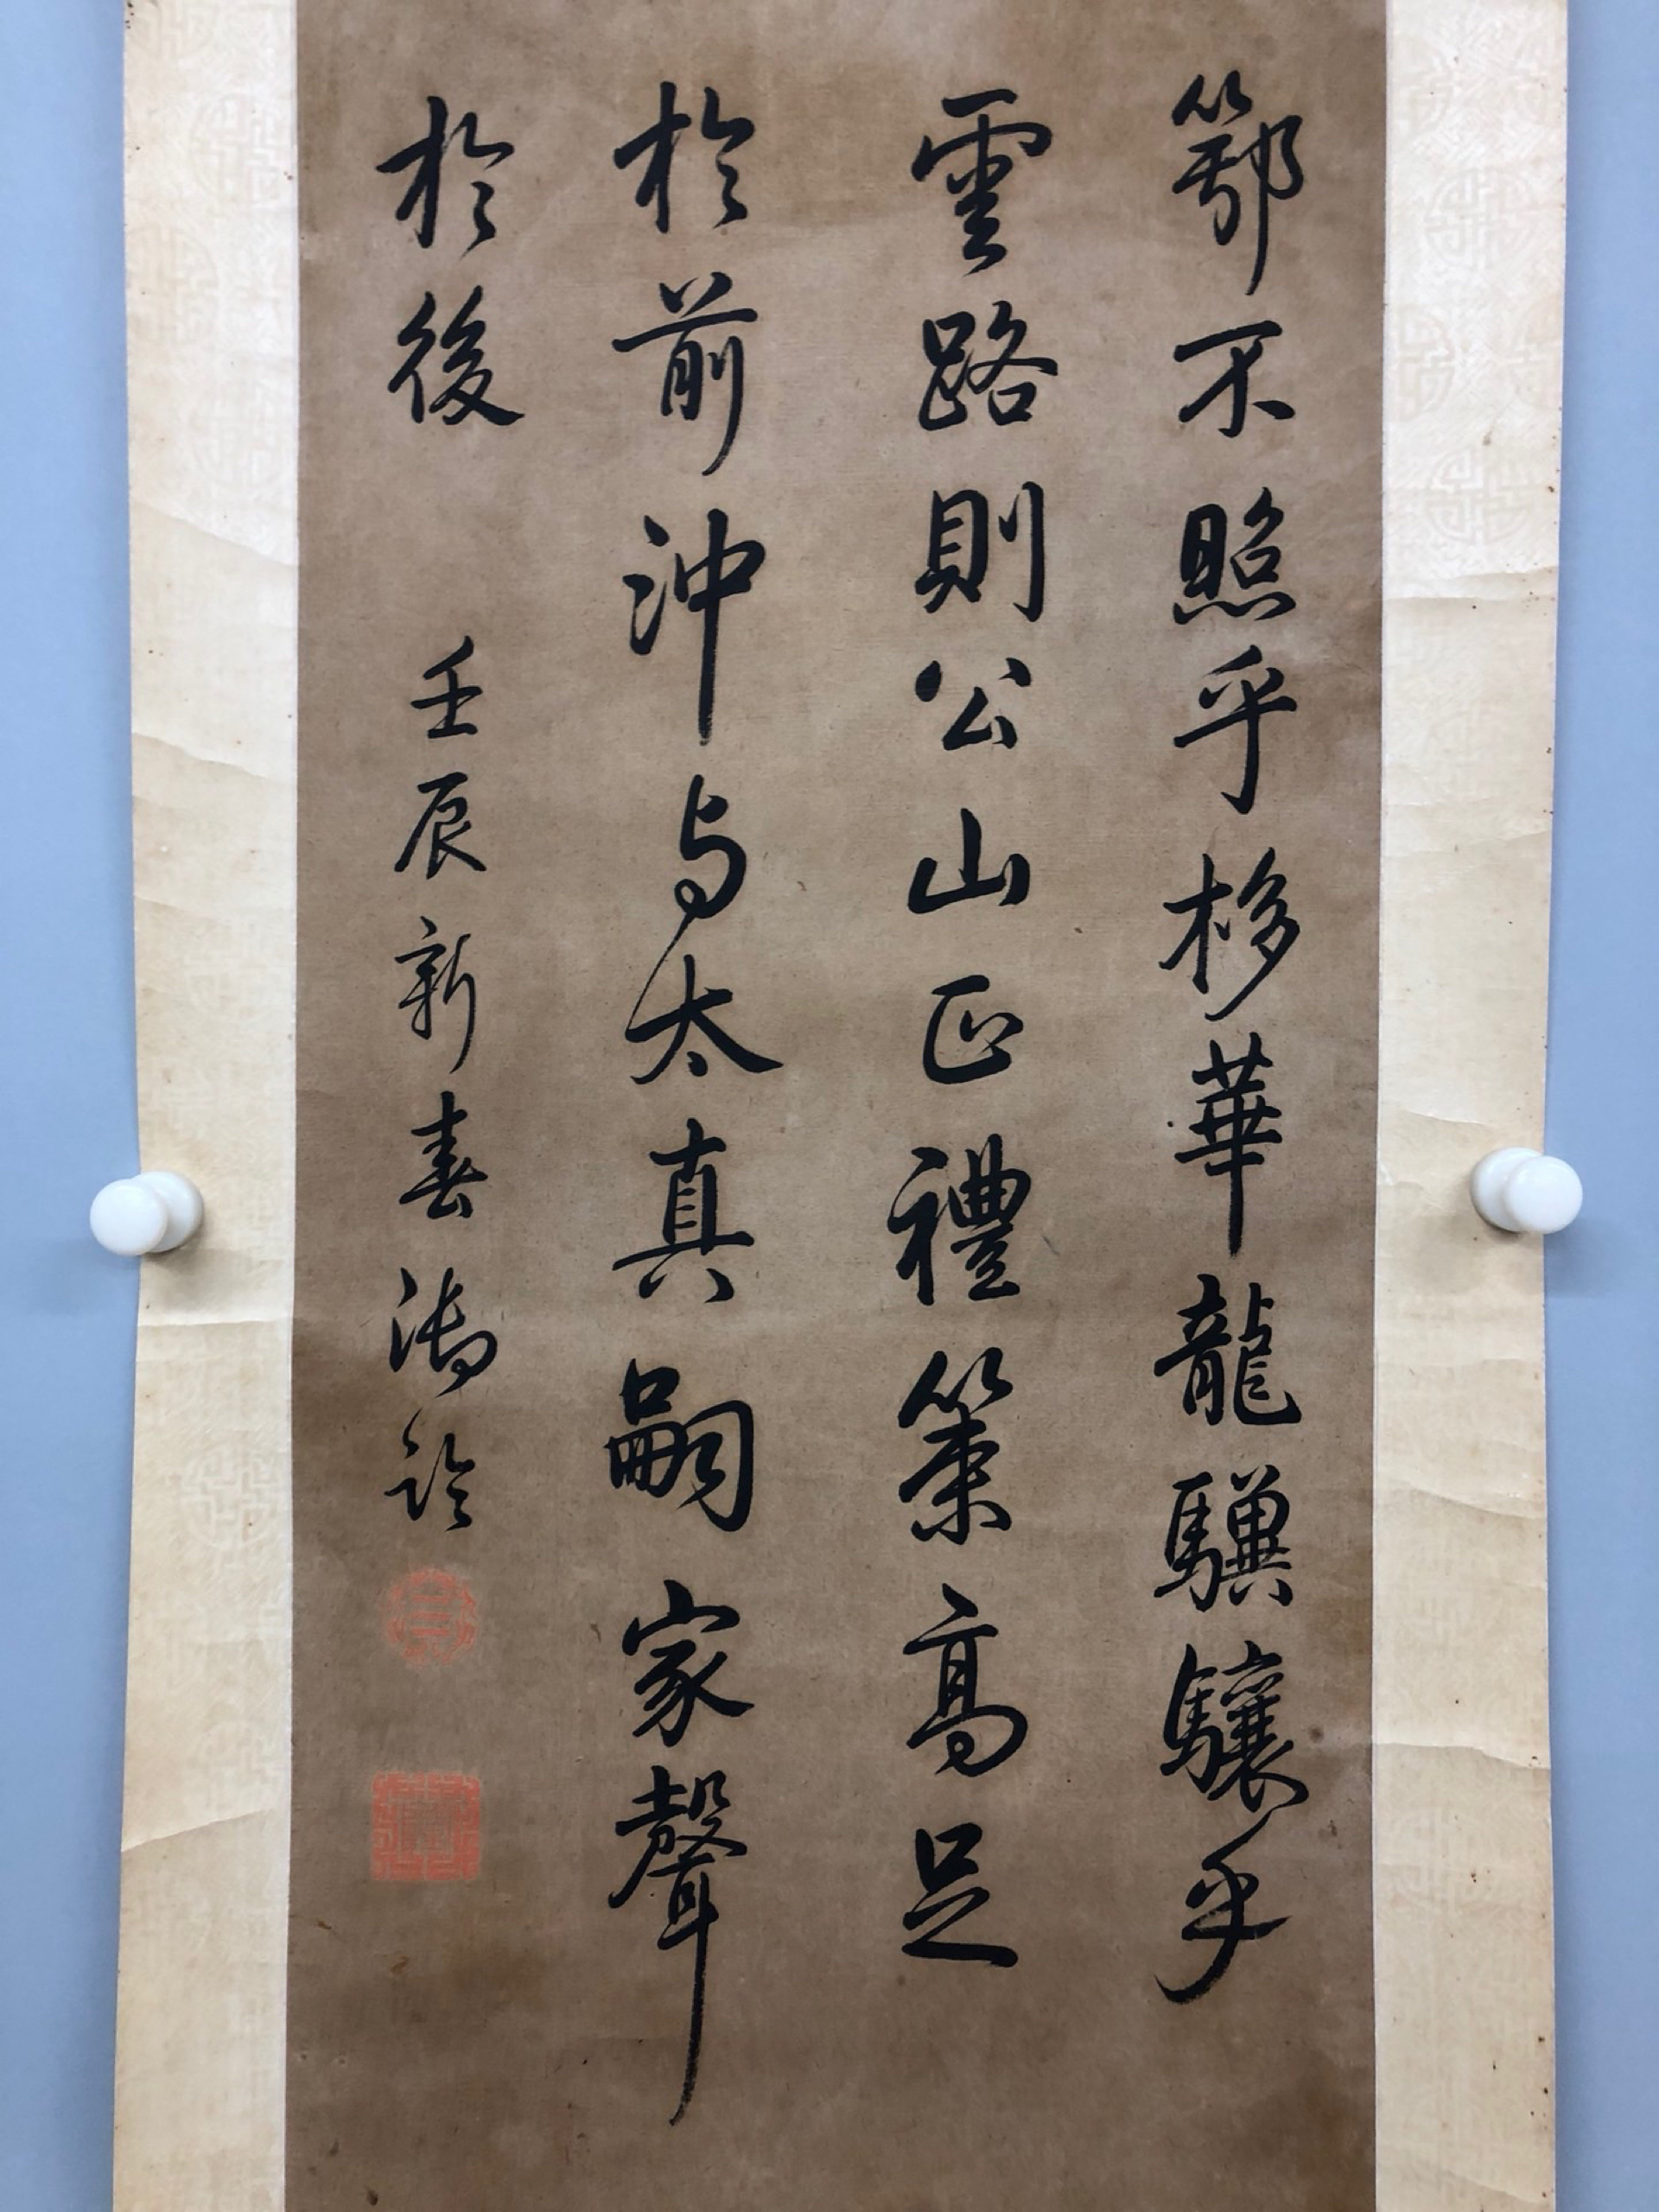 鄂不照乎栘華龍驥驤乎
雲路則公山正禮策高足
於前沖与太真嗣家聲
於後
壬辰新春 御詮